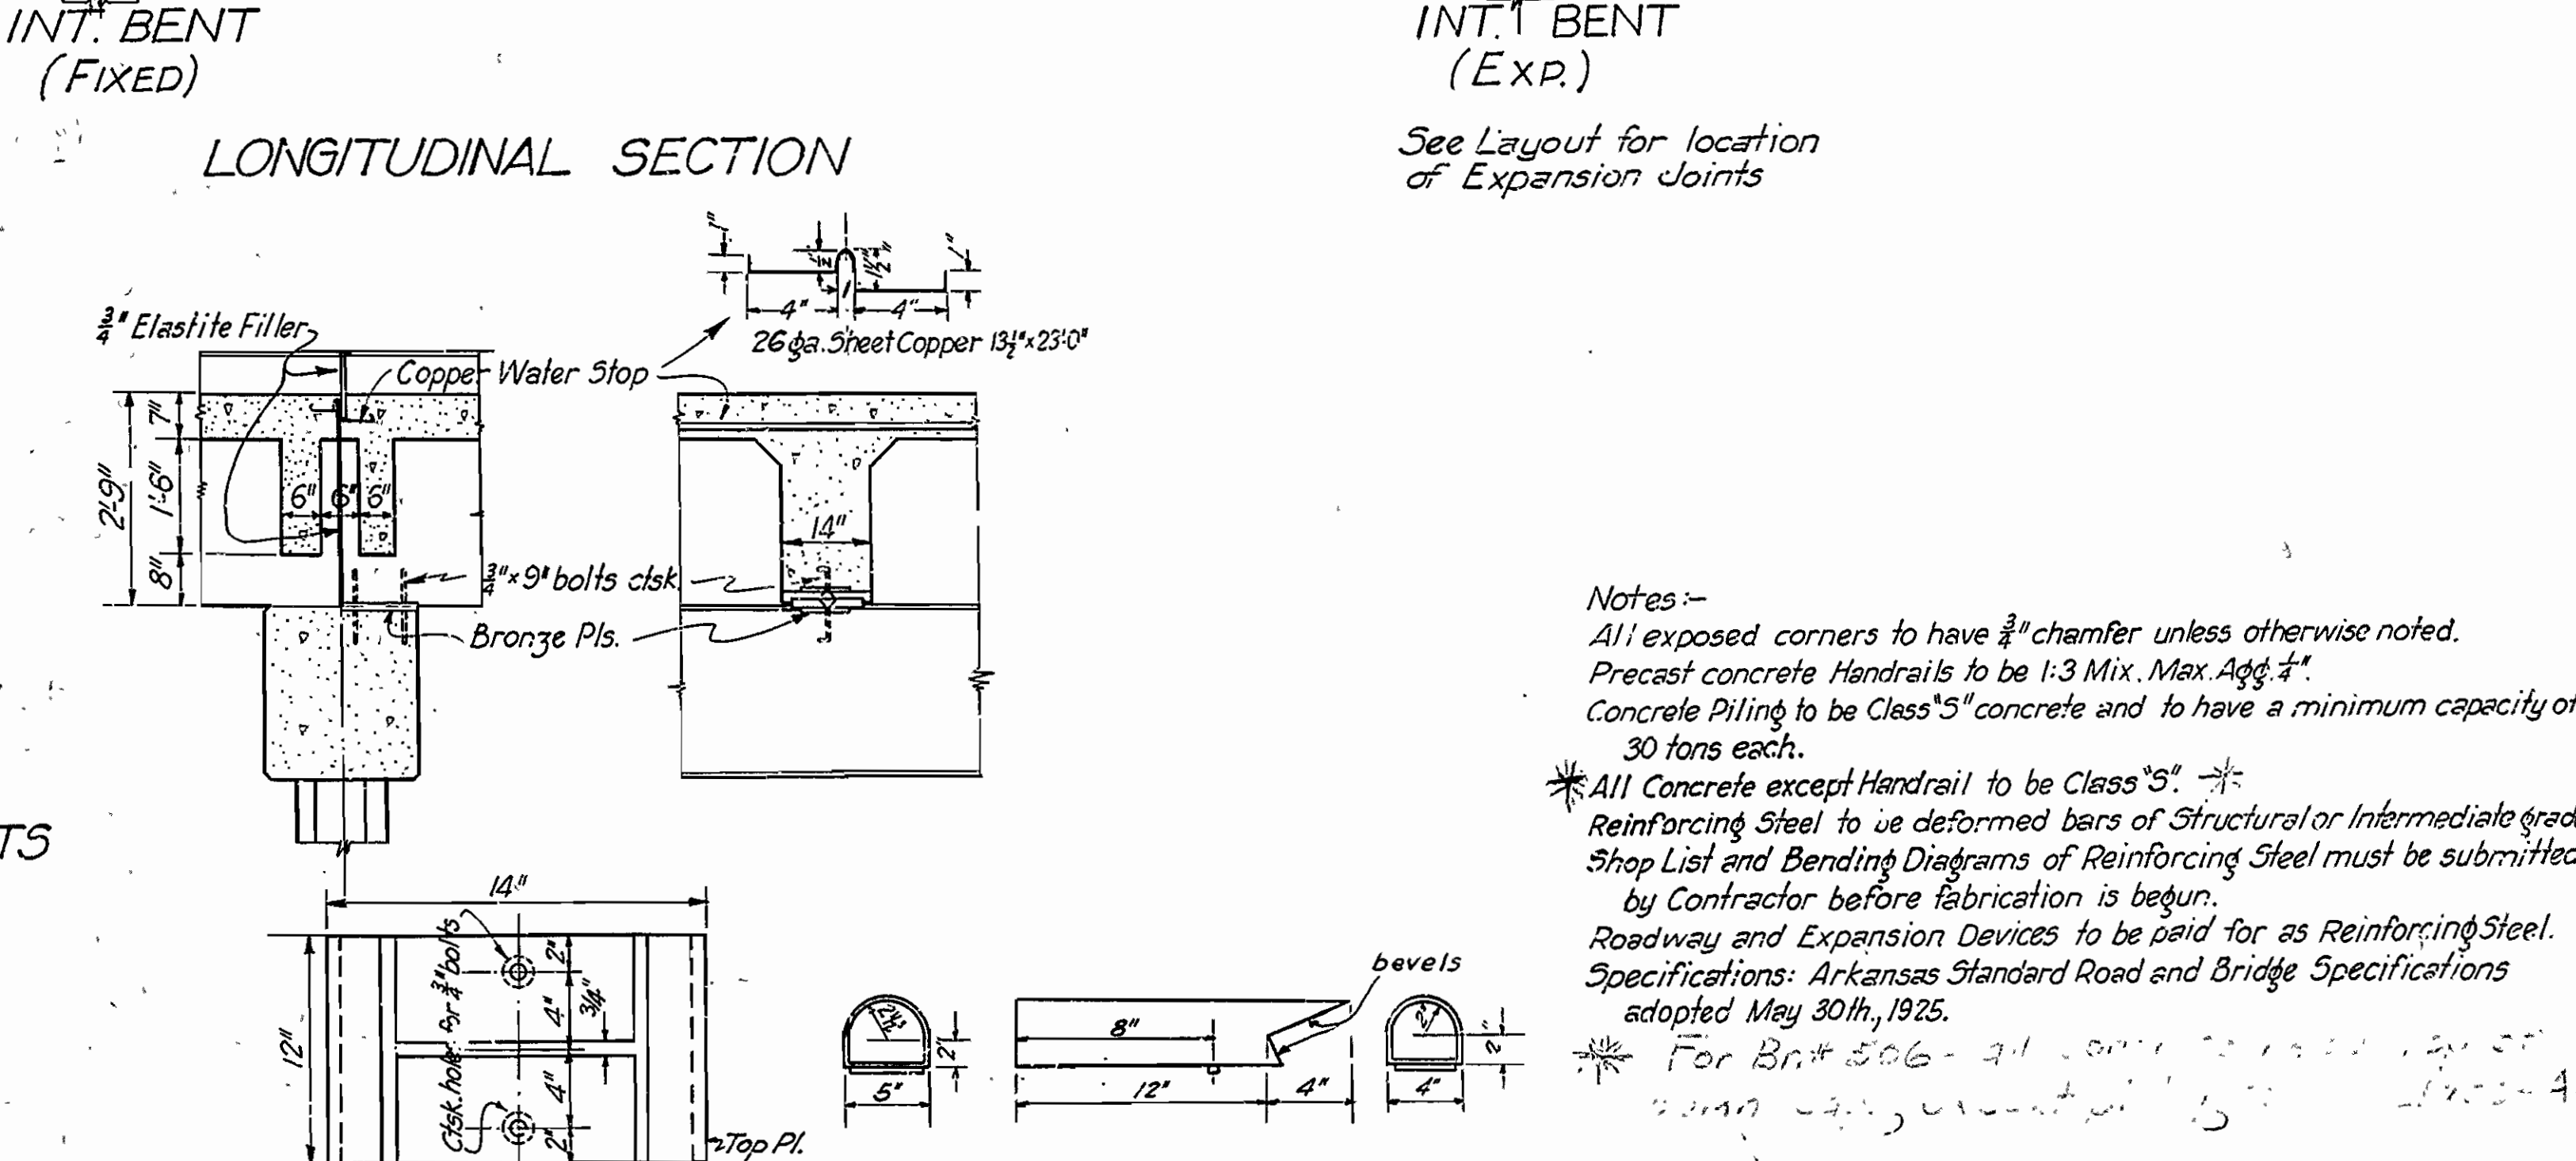 INT. BENT
(FIXED)
INT. BENT
(EXP.)
See Layout for location
of Expansion Joints
LONGITUDINAL SECTION
1"
1/2"
1 1/2"
1"
4"
4"
26 ga. Sheet Copper 13½"x23'-0"
3/4" Elastite Filler
Copper Water Stop
7"
2'-9"
1'-6"
8"
6" 6" 6"
14"
3/4"x9" bolts ctsk.
Bronze Pls.
TS
14"
12"
Ctsk. holes for 3/4" bolts
2"
4"
3/4"
4"
2"
Top Pl.
2½"
2"
5"
8"
12"
4"
bevels
2"
2"
4"
Notes:-
All exposed corners to have 3/4" chamfer unless otherwise noted.
Precast concrete Handrails to be 1:3 Mix. Max. Agg. 1/4".
Concrete Piling to be Class "S" concrete and to have a minimum capacity of
30 tons each.
All Concrete except Handrail to be Class "S".
Reinforcing Steel to be deformed bars of Structural or Intermediate grad
Shop List and Bending Diagrams of Reinforcing Steel must be submitted
by Contractor before fabrication is begun.
Roadway and Expansion Devices to be paid for as Reinforcing Steel.
Specifications: Arkansas Standard Road and Bridge Specifications
adopted May 30th., 1925.
For Br.# 506-